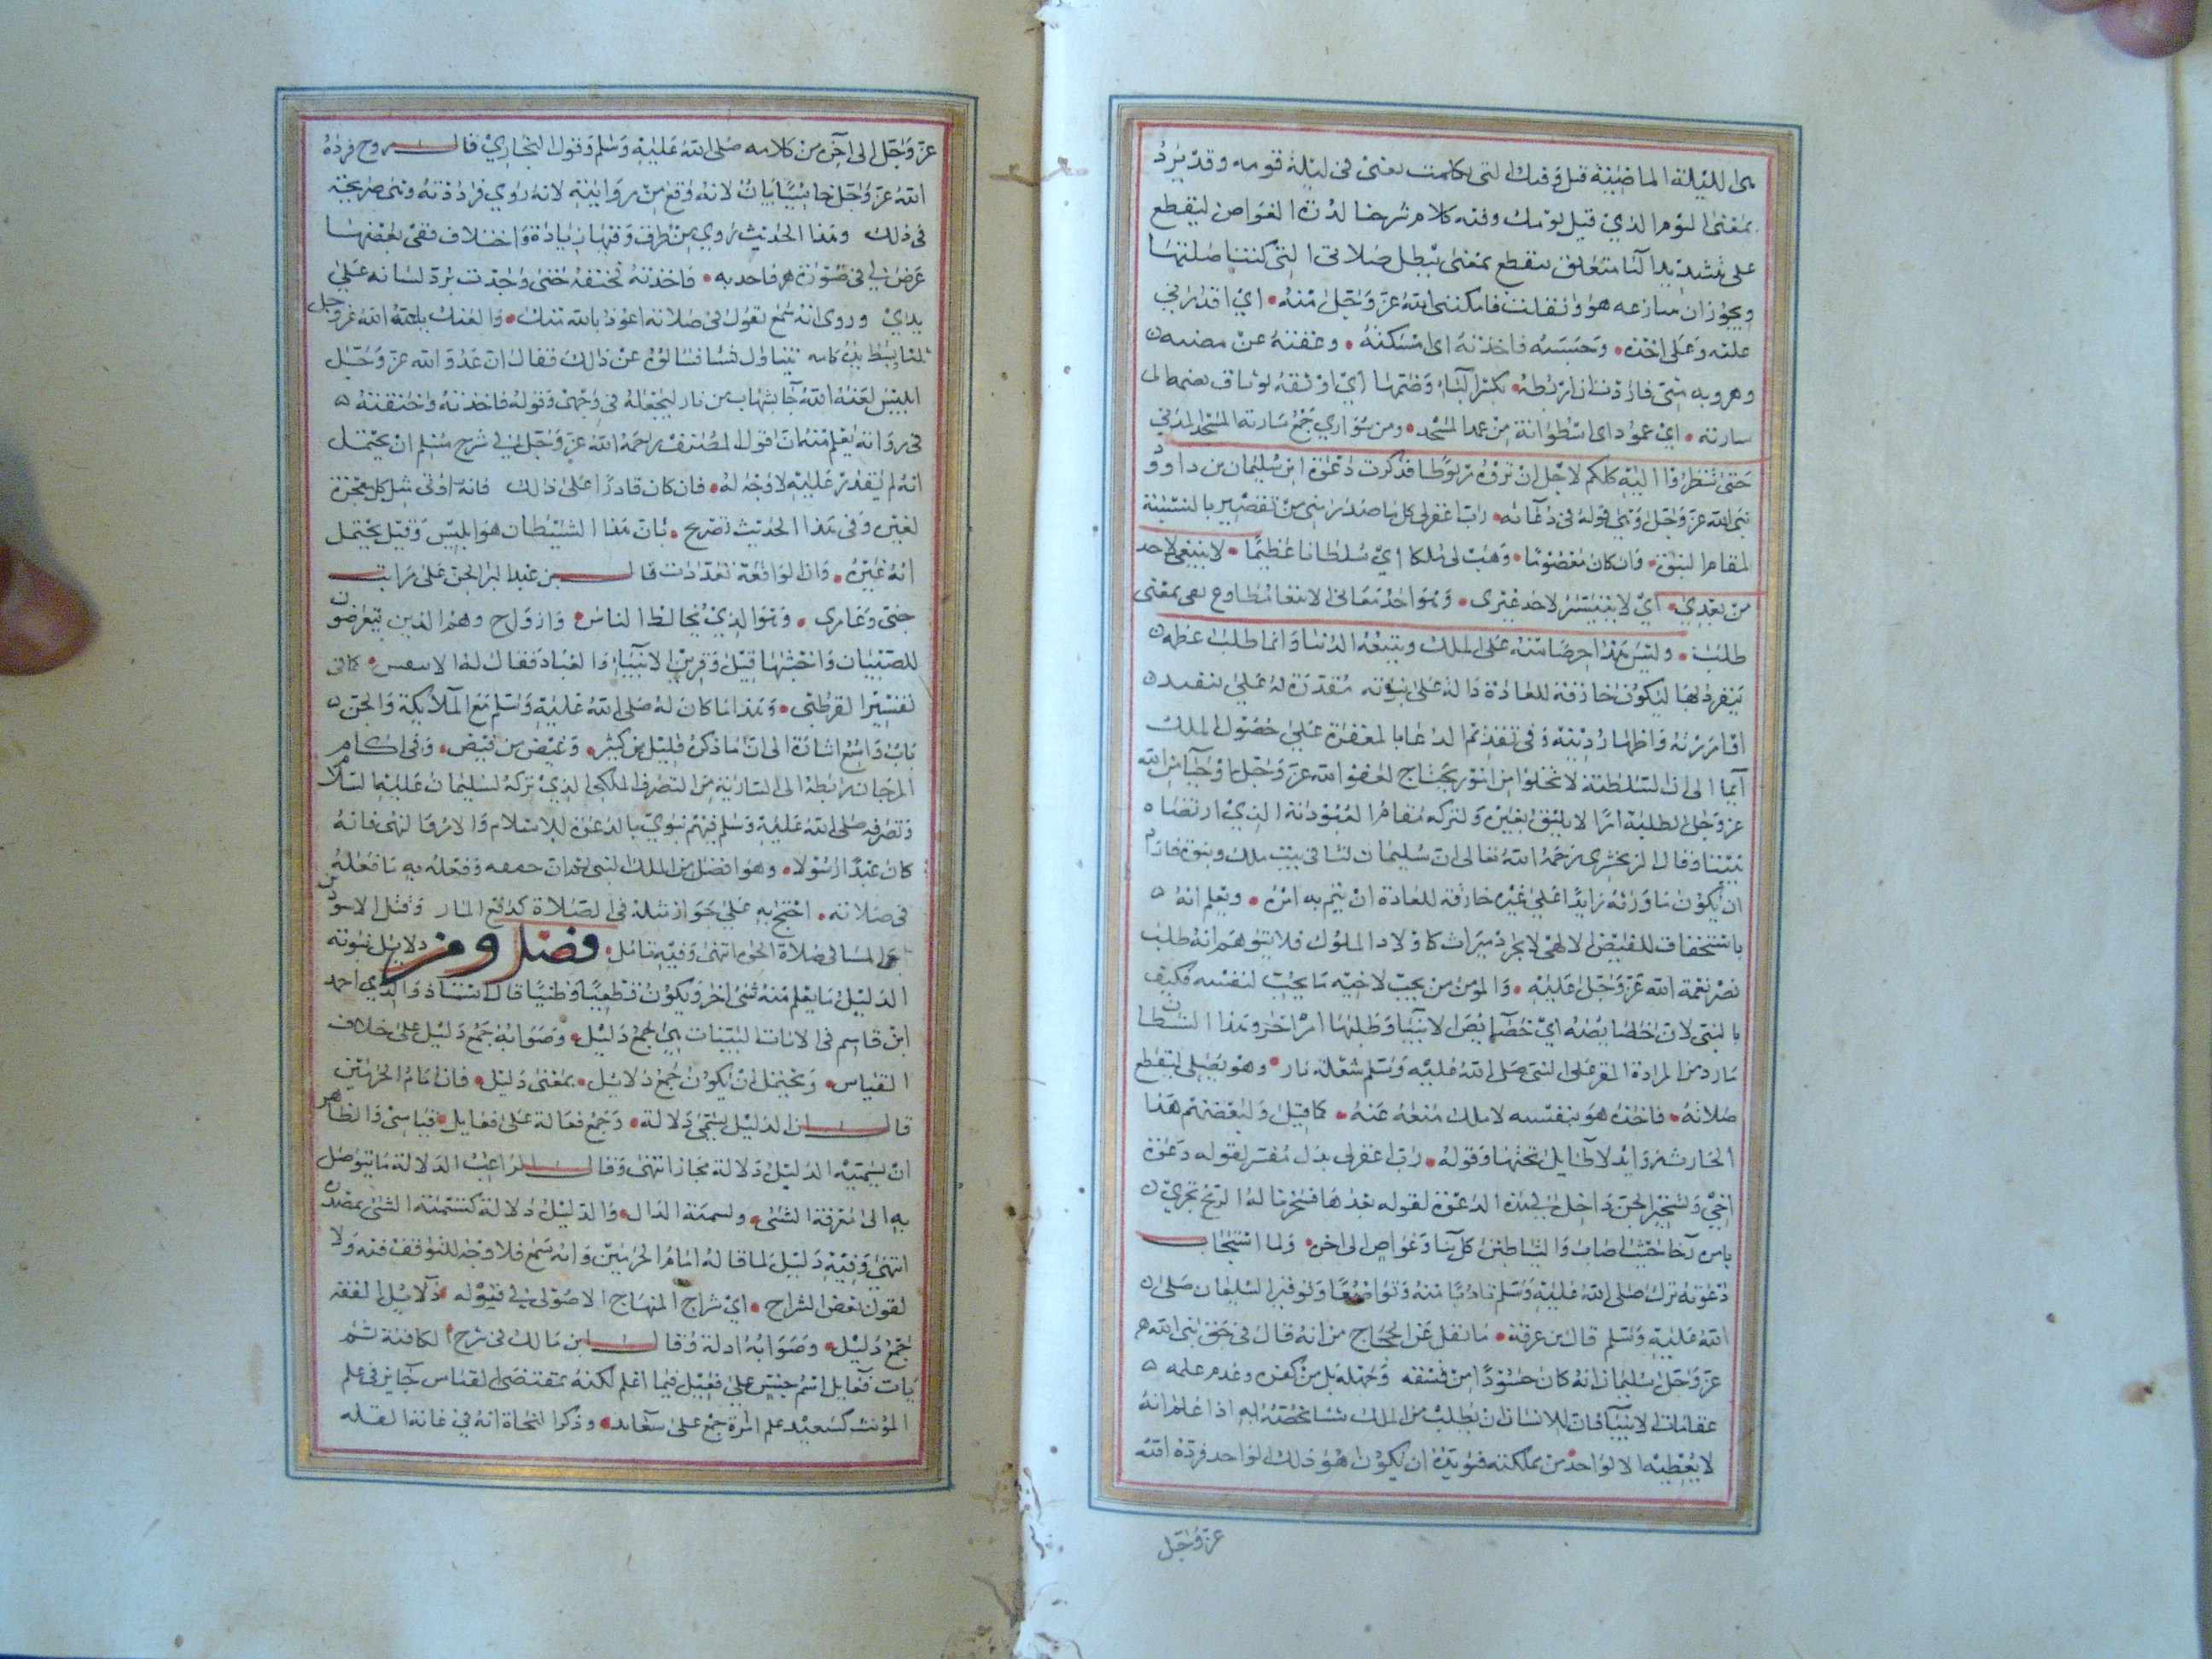 هي الليلة الماضية قبل وقتك التي تكلمت يعني في ليلة قومه وقد يرد
بمعنى اليوم الذي قبل يومك وفيه كلام شرحنا لدرة الغواص ليقطع
على بتشديد اليا متعلق بيقطع بمعنى يبطل صلاتي التي كنت اصليتها
ويجوز ان فامكنني الله عز وجل منه اي اقدرني
عليه وعلى اخذه وحبسه فاخذته اي امسكته
وهروبه مني فاردت ان اربطه بكسر الباء وضمها اي اوثقه بوثاق الى
سارية اي عمود اي اسطوانة من عمد المسجد ومن سواري جمع سارية المسجد المدني
حتى تنظروا اليه كلكم لاجل ان تروه مربوطا فذكرت دعوة ابن سليمان بن داود
نبي الله عز وجل وهي قوله في دعائه رب اغفر لي كل ما صدر مني من تقصير بالنسبة
لمقام النبوة وان كان معصوما وهب لي ملكا اي سلطانا عظيما لا ينبغي لاحد
من بعدي اي لا يتيسر لاحد غيري وهو احد معاني الانبغا مطاوع بغى بمعنى
طلب وليس هذا حرصا منه على الملك وانما طلب
ينفرد بها ليكون خارقة للعادة دالة على نبوته مقدرة له على تنفيذ
اوامر ربه واظهار دينه وفي تقديم الدعا بالمغفرة على حصول الملك
ايما الى ان السلطنة لا تخلوا من امور يحتاج لعفو الله عز وجل
عز وجل لطلبه امرا لا يليق بغيره ولتركه مقام العبودية الذي ارتضاه
نبينا وقال الزمخشري رحمه الله تعالى ان سليمان نشا في بيت ملك ونبوة فاراد
ان يكون ما ورثه زايدا على غيره خارقة للعادة ان يتم به امره ويعلم انه
باستحقاق للفيض الالهي لا بمجرد ميراث كاولاد الملوك فلا يتوهم انه طلب
نعمة الله عز وجل عليه والمومن من يحب لاخيه ما يحب لنفسه فكيف
بالنبي لان خصايصه اي خصايص الانبيا وطلبها امر اخر وهذا الشيطان
مارد من المردة على النبي صلى الله عليه وسلم شعلة نار وهو يصلي ليقطع
صلاته فاخذه هو بنفسه لا ملك منعه عنه كما قيل ولبعضهم هذا
لا طايل تحتها وقوله رب اغفر لي بدل مفسر لقوله دعوة
اخي وتسخير الجن داخل في هذه الدعوة لقوله بعدها فسخرنا له الريح تجري
بامره رخا حيث اصاب والشياطين كل بنا وغواص الى اخره ولما استجاب
دعوته ترك صلى الله عليه وسلم تادبا منه وتواضعا وتوقيرا لسليمان صلى
الله عليه وسلم قال بن عرفة ما نقل عن الحجاج من انه قال في حق نبي الله
عز وجل سليمان انه كان حسودا من فسقه وجهله بل من كفره وعدم علمه
مقامات الانبيا فان للانسان ان يطلب من الملك شيا يخصه به اذا علم انه
لا يعطيه الا لواحد من مملكته ان يكون هو ذلك الواحد فرده الله
عز وجل
عز وجل الى اخره من كلامه صلى الله عليه وسلم وقول البخاري قال روح فرده
الله عز وجل خاسيا بيان لانه وقع من روايته لانه روي فرددته وهي صريحة
في ذلك وهذا الحديث روي من طرق وفيها زيادة واختلاف ففي بعضها
عرض لي في صورة هر فاخذته فخنقته حتى وجدت برد لسانه على
يدي وروى انه سمع يقول في صلاته اعوذ بالله منك والعنك بلعنة الله عز وجل
ثلثا يبسط يده كانه يتناول شيا فسالوه عن ذلك فقال ان عدو الله عز وجل
ابليس لعنه الله جا بشهاب من نار ليجعله في وجهي وقوله فاخذته وخنقته
في رواية يعلم منه ان قول المصنف رحمه الله عز وجل في شرح مسلم ان يحتمل
انه لم يقدر عليه لا وجه له فان كان قادرا على ذلك فانه اوتي مثل كل معجزة
لغيره وفي هذا الحديث تصريح بان هذا الشيطان هو ابليس وقيل يحتمل
انه غيره وان الواقعة تعددت قال بن عبد البر الجن على مراتب
جني وعامري وهو الذي يخالط الناس وارواح وهم الذين يتعرضون
للصبيان واخبثها قيل وقرين الانبيا والعباد فقال له الابيض كما في
تفسير القرطبي وهذا ما كان له صلى الله عليه وسلم مع الملايكة والجن
باب واسع اشارة الى ان ما ذكره قليل من كثير وغيض من فيض وفي اكام
المرجان ربطه الى السارية من التصرف الملكي الذي تركه لسليمان عليهما السلام
وتصرفه صلى الله عليه وسلم فيهم نبوي بالدعوة للاسلام والامر والنهي فانه
كان عبدا رسولا وهو افضل من الملك النبي وفعله به ما فعله
في صلاته احتج به على جواز مثله في الصلاة كدافع المار وقتل الاسودين
في صلاة الخوف انتهى وفيه تامل فصل ومن دلايل نبوته
الدليل ما يعلم منه شي اخر ويكون قطعيا وظنيا قال استاذ والدي احمد
ابن قاسم في الايات البينات هي جمع دليل وصوابه جمع دليل على خلاف
القياس ويحتمل ان يكون جمع دلايل بمعنى دليل فان امام الحرمين
قال ان الدليل يسمى دلالة وجمع فعالة على فعايل قياسي والظاهر
ان تسمية الدليل دلالة مجاز انتهى وقال الراغب الدلالة ما يتوصل
به الى معرفة الشي وتسمية الدال والدليل دلالة كتسمية الشي بمصدره
انتهى وفيه دليل لما قاله امام الحرمين وانه سمع فلا وجه للتوقف فيه ولا
لقول بعض الشراح اي شراح المنهاج الاصولي في قوله دلايل الفقه
جمع دليل وصوابه ادلة وقال ابن مالك في شرح الكافية لم
يات فعايل اسم جنس على فعيل فيما اعلم لكنه بمقتضى القياس جايز في علم
المؤنث كسعيد علم امراة جمع على سعايد وذكر النحاة انه في غاية القلة